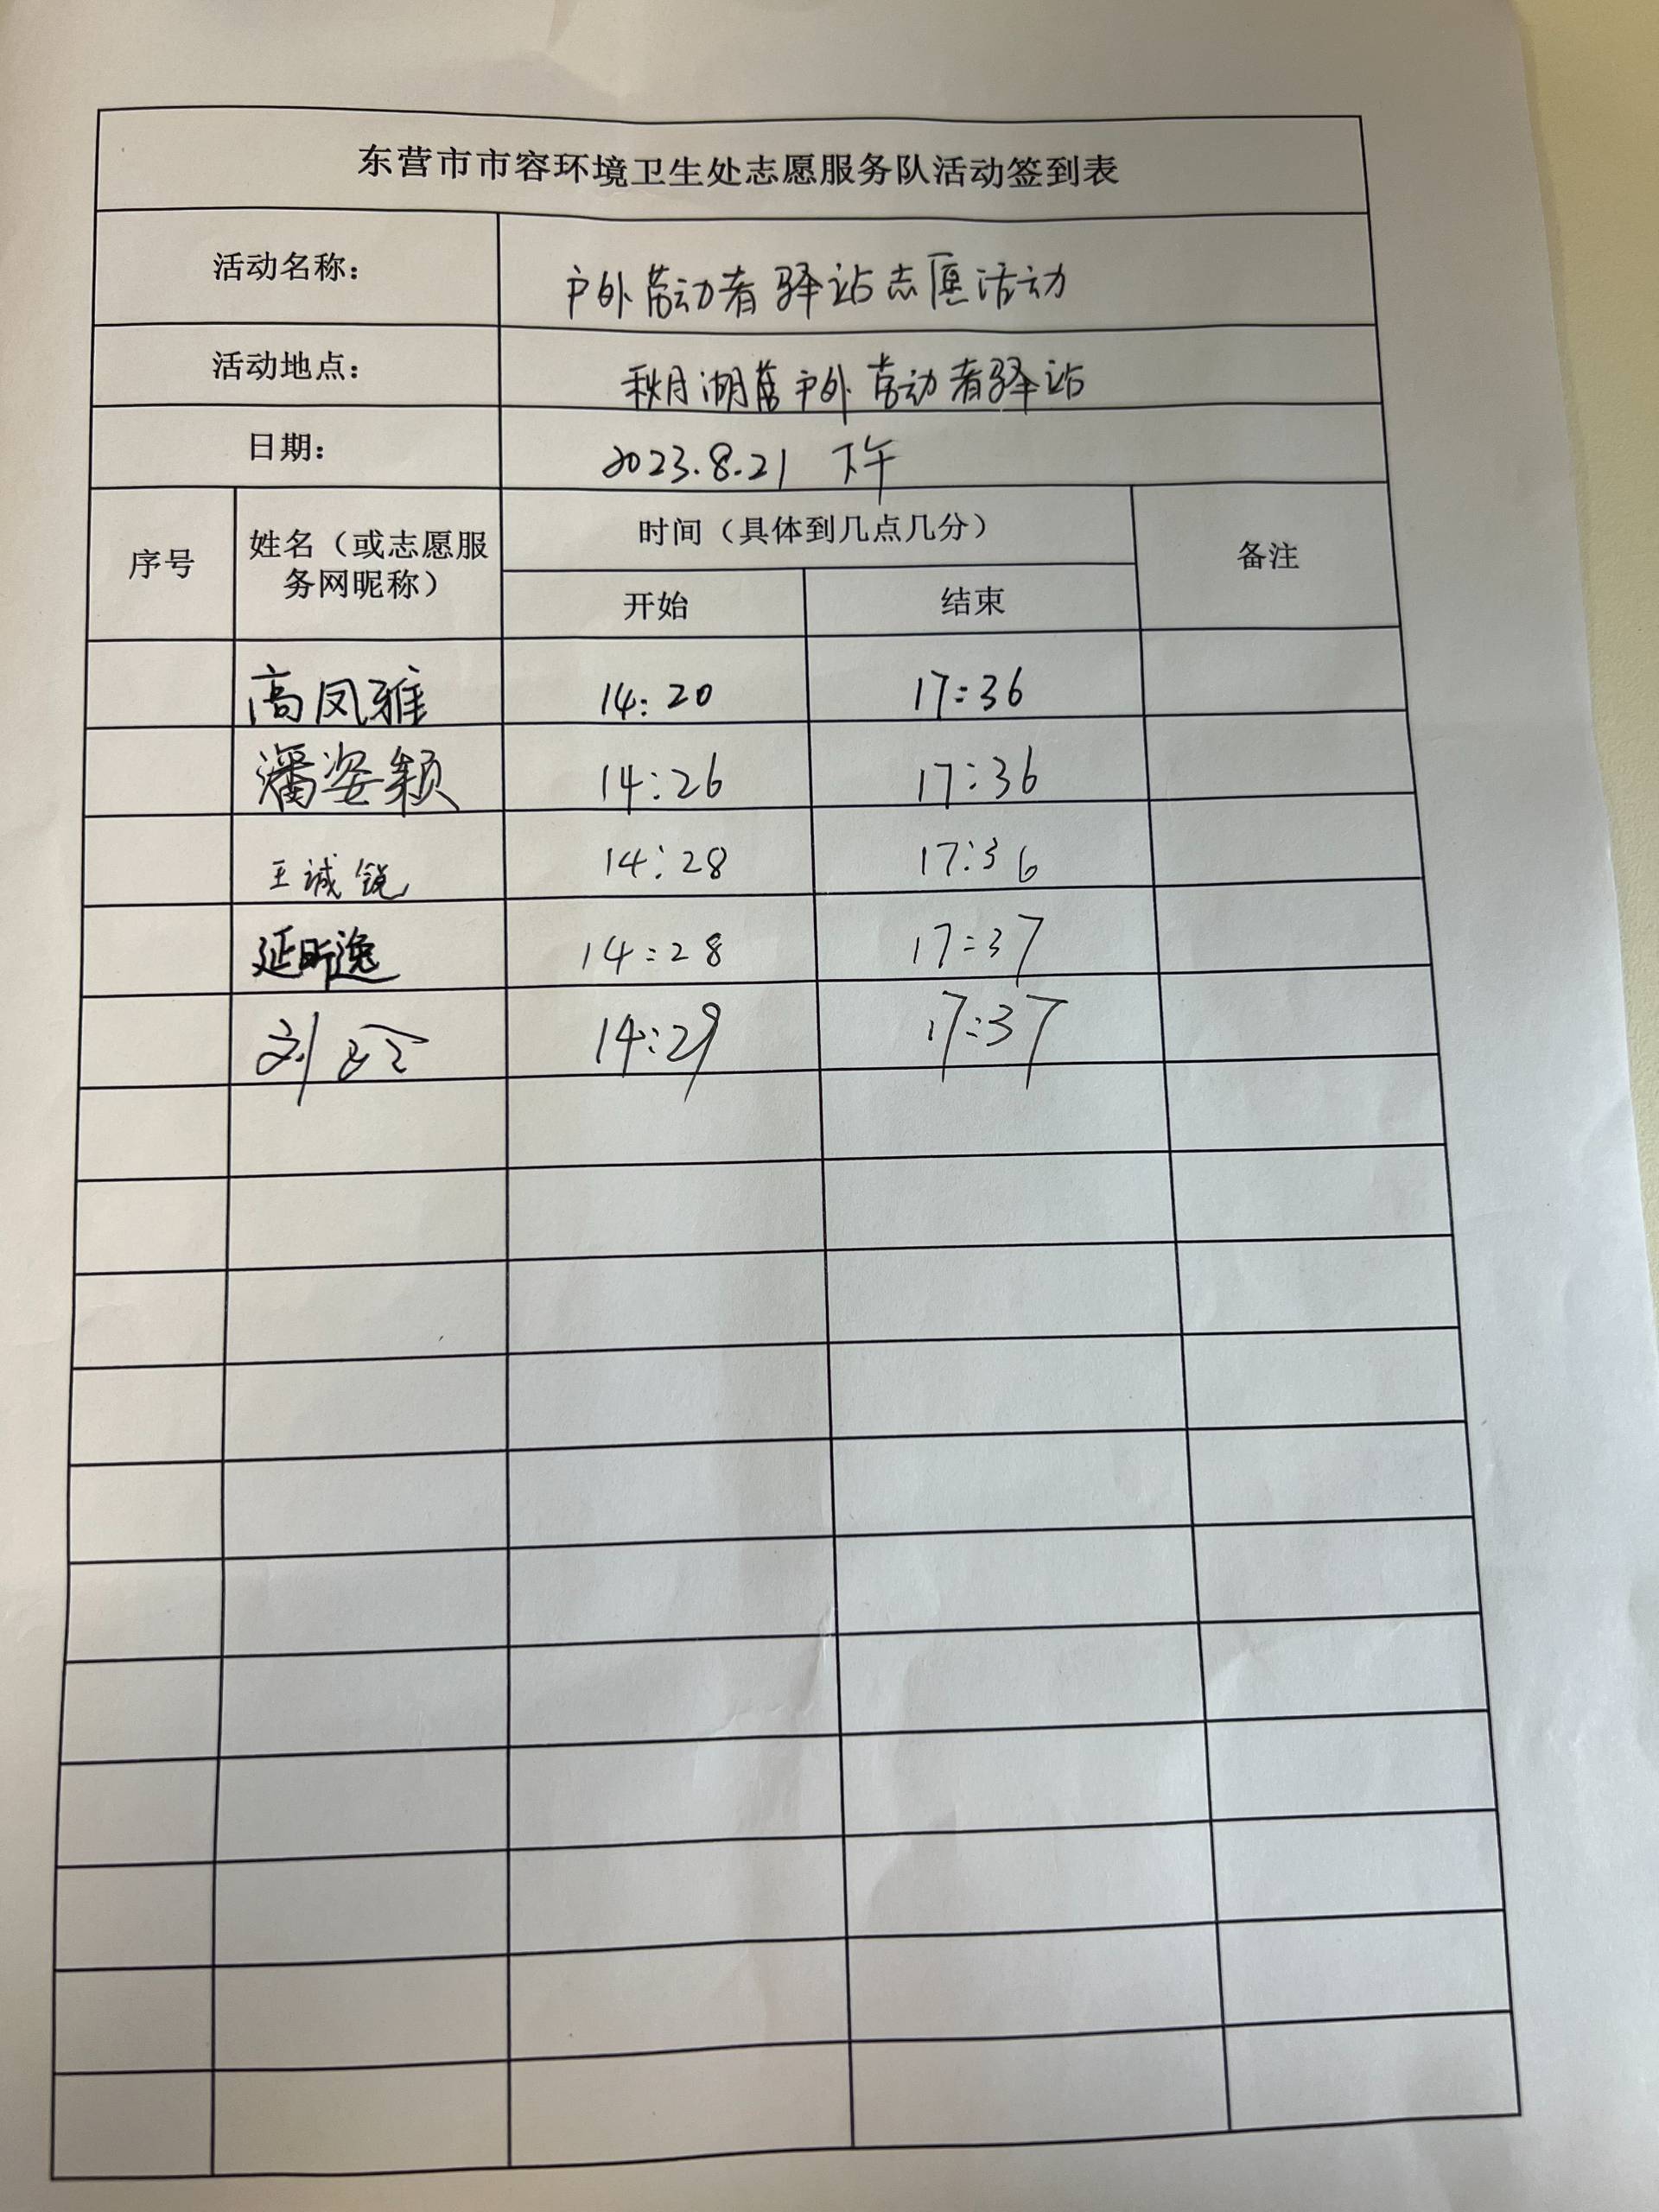 东营市市容环境卫生处志愿服务队活动签到表
活动名称： 户外劳动者驿站志愿活动
活动地点： 秋月湖营户外劳动者驿站
日期： 2023.8.21 下午
序号 姓名（或志愿服务网昵称） 时间（具体到几点几分） 备注
开始 结束
高凤雅 14:20 17:36
潘姿颖 14:26 17:36
王诚锐 14:28 17:36
延昕逸 14:28 17:37
刘 14:29 17:37